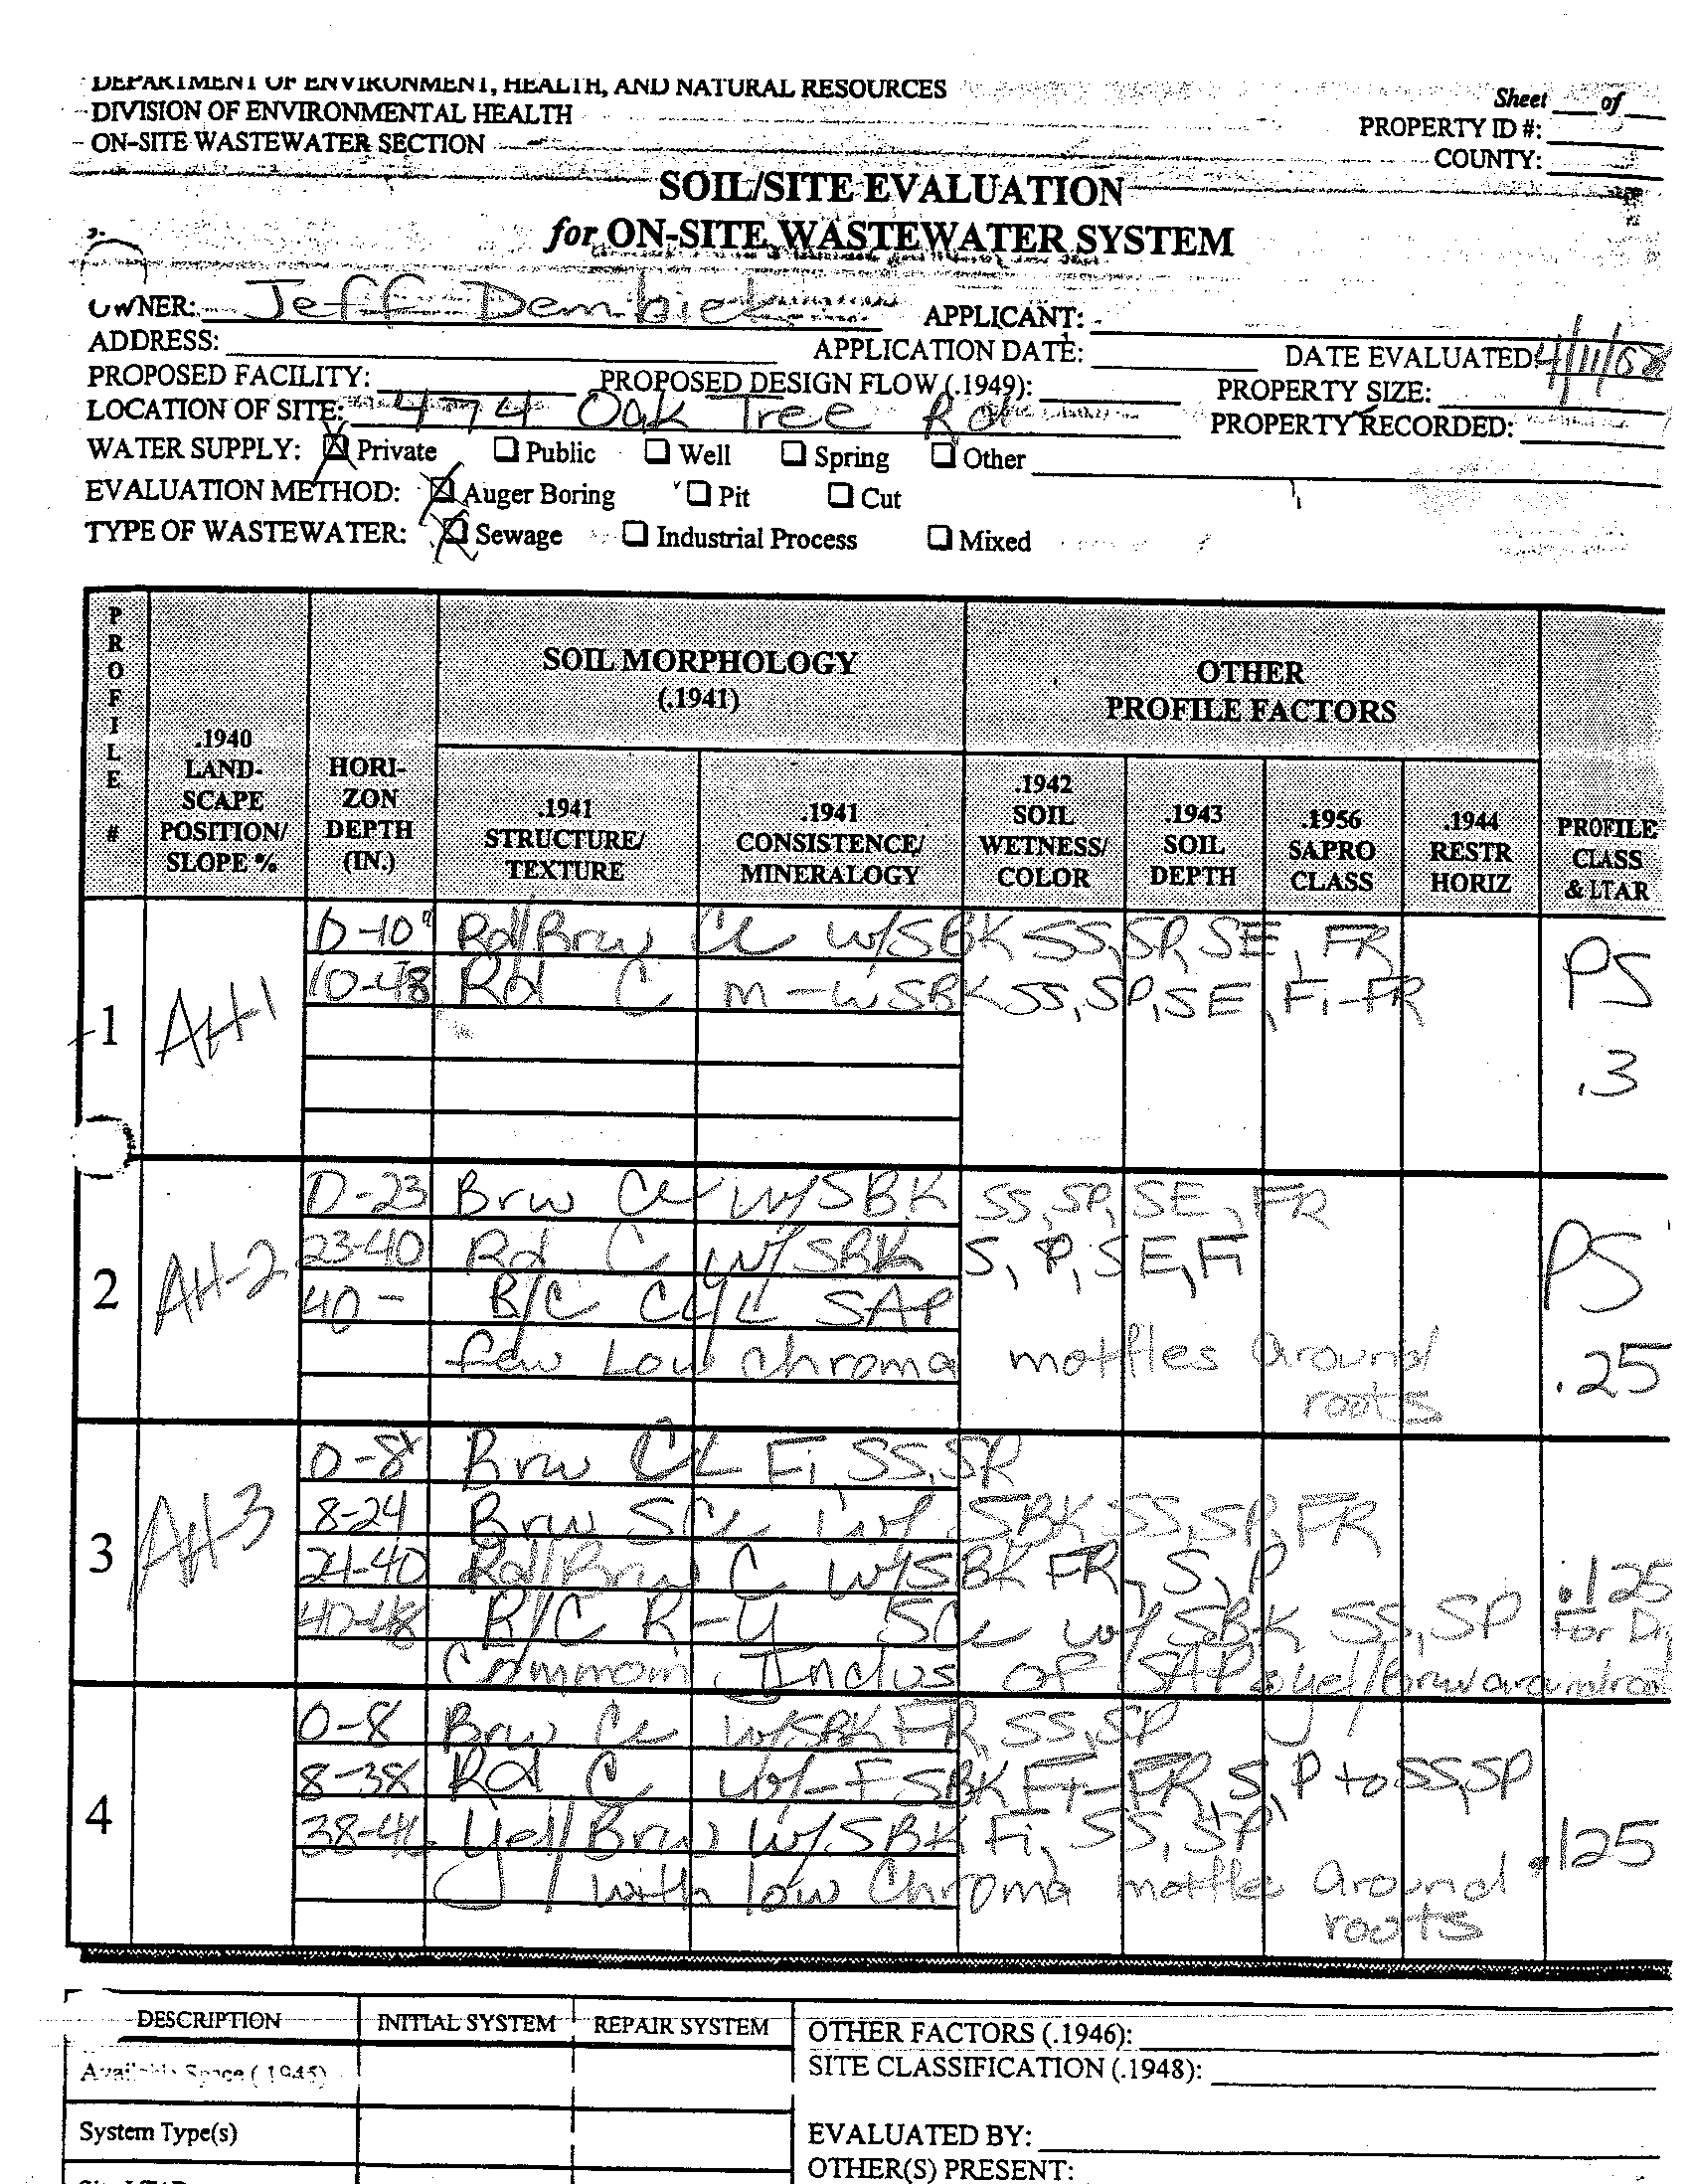 DEPARTMENT OF ENVIRONMENT, HEALTH, AND NATURAL RESOURCES
DIVISION OF ENVIRONMENTAL HEALTH
ON-SITE WASTEWATER SECTION
Sheet of
PROPERTY ID #:
COUNTY:
SOIL/SITE EVALUATION
for ON-SITE WASTEWATER SYSTEM
OWNER: Jeff Dembick APPLICANT:
ADDRESS: APPLICATION DATE: DATE EVALUATED: 4/11/08
PROPOSED FACILITY: PROPOSED DESIGN FLOW (.1949): PROPERTY SIZE:
LOCATION OF SITE: 474 Oak Tree Rd PROPERTY RECORDED:
WATER SUPPLY: Private Public Well Spring Other
EVALUATION METHOD: Auger Boring Pit Cut
TYPE OF WASTEWATER: Sewage Industrial Process Mixed
PROFILE #
.1940 LAND-SCAPE POSITION/ SLOPE %
HORI-ZON DEPTH (IN.)
SOIL MORPHOLOGY (.1941)
.1941 STRUCTURE/ TEXTURE
.1941 CONSISTENCE/ MINERALOGY
OTHER PROFILE FACTORS
.1942 SOIL WETNESS/ COLOR
.1943 SOIL DEPTH
.1956 SAPRO CLASS
.1944 RESTR HORIZ
PROFILE CLASS & LTAR
1 AH-1
0-10" Rd/Brw CL w/SBK SS, SP, SE, FR
10-48 Rd C m-wSBK SS, SP, SE, Fi-FR
PS
.3
2 AH-2
0-23 Brw CL w/SBK SS, SP, SE, FR
23-40 Rd C w/SBK S, P, SE, Fi
40- B/C CL/L SAP
few Low chroma mottles around
roots
PS
.25
3 AH-3
0-8 Brw CL Fi SS, SP
8-24 Brw SCL w/ SBK SS, SP, FR
24-40 Rd/Brw C w/SBK FR, S, P
40-48 B/C R-Y SCL w/ SBK SS, SP
Common Inclus of SAP yel/Brw around root
.125
For
4
0-8 Brw CL w/SBK FR, SS, SP
8-38 Rd C w/-F SBK Fi-FR, S, P to SS, SP
38-41 Yel/Brw w/SBK Fi, SS, SP
with low Chroma mottles around
roots
.125
DESCRIPTION INITIAL SYSTEM REPAIR SYSTEM
Available Space (.1945)
System Type(s)
OTHER FACTORS (.1946):
SITE CLASSIFICATION (.1948):
EVALUATED BY:
OTHER(S) PRESENT: